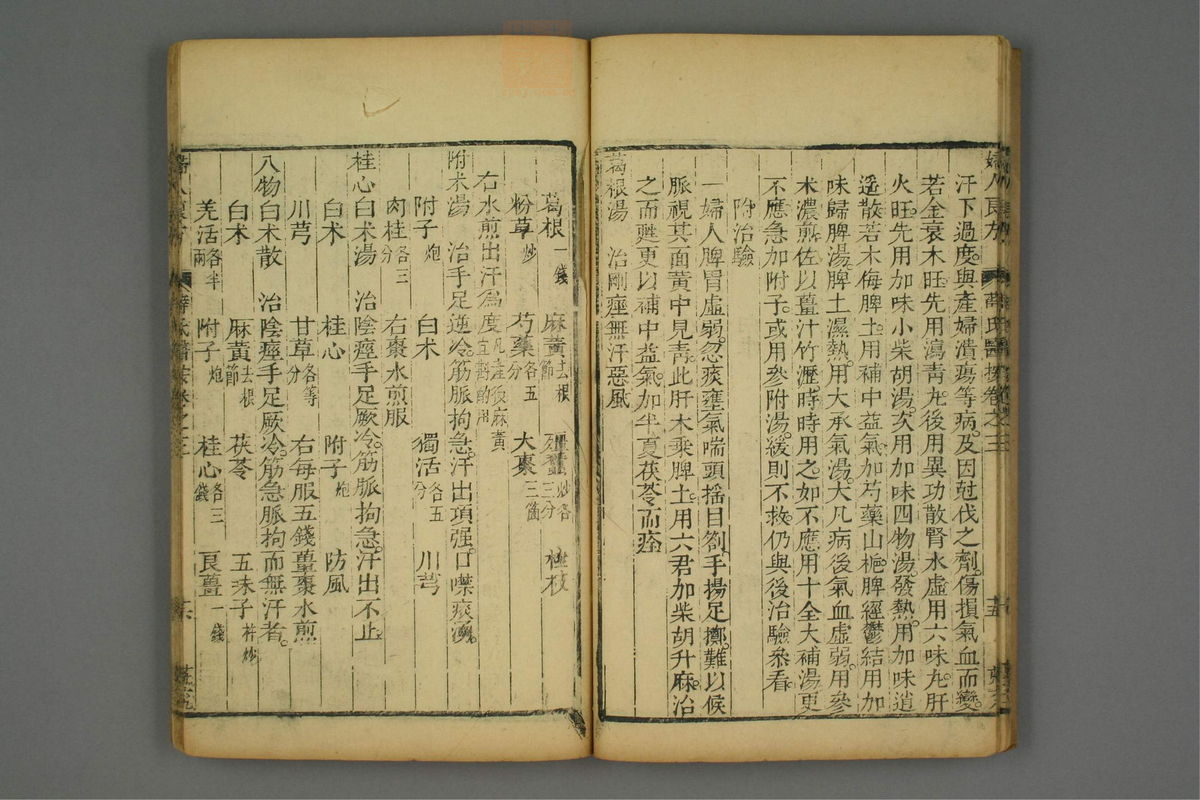 婦人良方 薛氏醫按卷之三
汗下過度與產婦潰瘍等病及因尅伐之劑傷損氣血而變
若金衰木旺先用瀉青丸後用異功散腎水虛用六味丸肝
火旺先用加味小柴胡湯次用加味四物湯發熱用加味逍
遙散若木侮脾土用補中益氣加芍藥山梔脾經鬱結用加
味歸脾湯脾土濕熱用大承氣湯大凡病後氣血虛弱用參
术濃煎佐以薑汁竹瀝時時用之如不應用十全大補湯更
不應急加附子或用參附湯緩則不救仍與後治驗叅看
附治驗
一婦人脾胃虛弱忽痰壅氣喘頭搖目劄手揚足擲難以候
脈視其面黃中見靑此肝木乘脾土用六君加柴胡升麻治
之而甦更以補中益氣加半夏茯苓而痊
葛根湯 治剛痙無汗惡風
葛根一錢 麻黃去根節 殭蠶炒各三分 桂枝
粉草炒 芍藥各五分 大棗三箇
右水煎出汗爲度凡產後麻黃宜斟酌用
附术湯 治手足逆冷筋脈拘急汗出項强口噤痰湧
附子炮 白术 獨活各五分 川芎
肉桂各三分 右棗水煎服
桂心白术湯 治陰痙手足厥冷筋脈拘急汗出不止
白术 桂心 附子炮 防風
川芎 甘草各等分 右每服五錢薑棗水煎
八物白术散 治陰痙手足厥冷筋急脈拘而無汗者
白术 麻黃去根節 茯苓 五味子杵炒
羌活各半兩 附子炮 桂心各三錢 良薑一錢